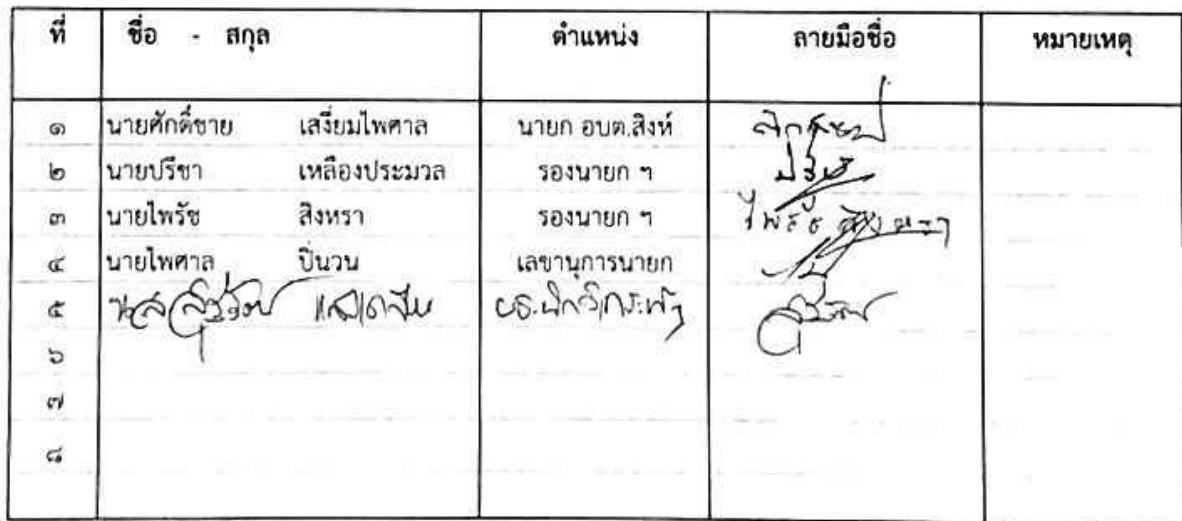 ที่ ชื่อ - สกุล ตำแหน่ง ลายมือชื่อ หมายเหตุ
๑ นายศักดิ์ชาย เสงี่ยมไพศาล นายก อบต.สิงห์
๒ นายปรีชา เหลืองประมวล รองนายก ฯ ปรีชา
๓ นายไพรัช สิงหรา รองนายก ฯ ไพรัช สิงหรา
๔ นายไพศาล ปิ่นวน เลขานุการนายก
๕
๖
๗
๘